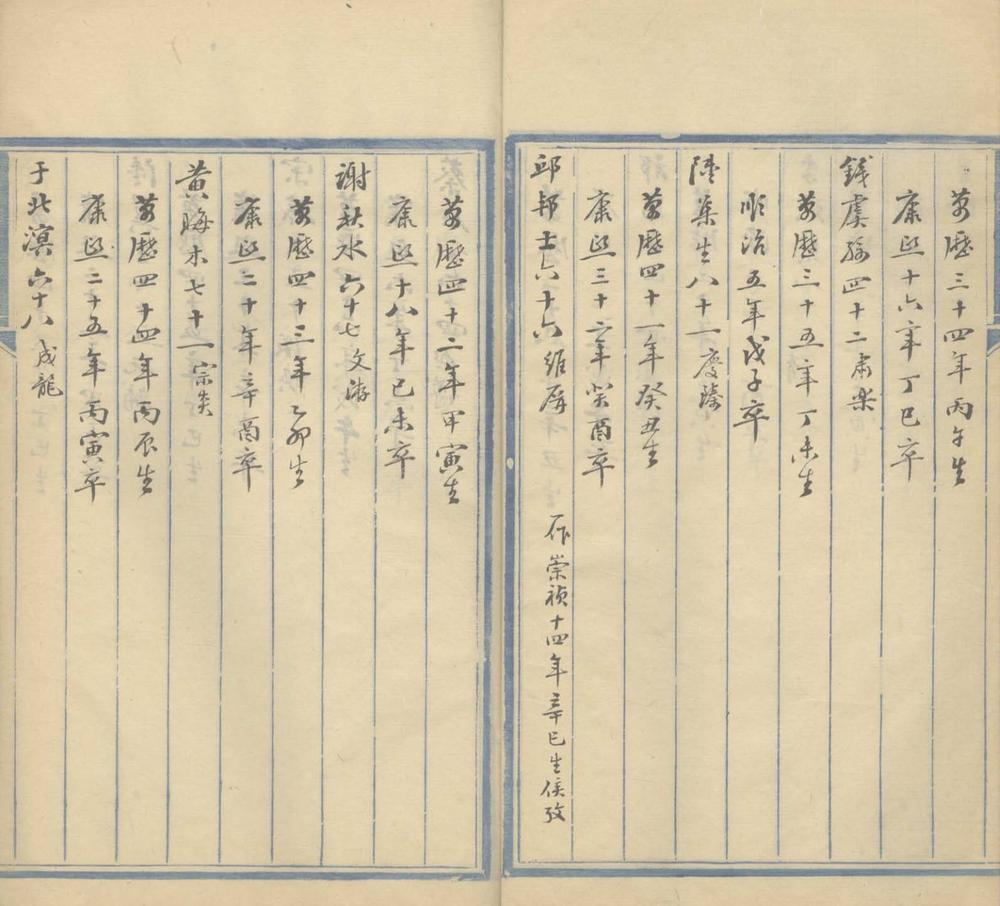 萬歷三十四年丙午生
康熙十六年丁巳卒
錢虞孫四十二肅樂
萬歷三十五年丁未生
順治五年戊子卒
陸集生八十一慶臻
萬歷四十一年癸丑生
康熙三十二年癸酉卒
邱邦士六十六維屏 一作崇禎十四年辛巳生俟攷
萬歷四十二年甲寅生
康熙十八年己未卒
謝秋水六十七文洊
萬歷四十三年乙卯生
康熙二十年辛酉卒
黃晦木七十一宗炎
萬歷四十四年丙辰生
康熙二十五年丙寅卒
于北溟六十八成龍